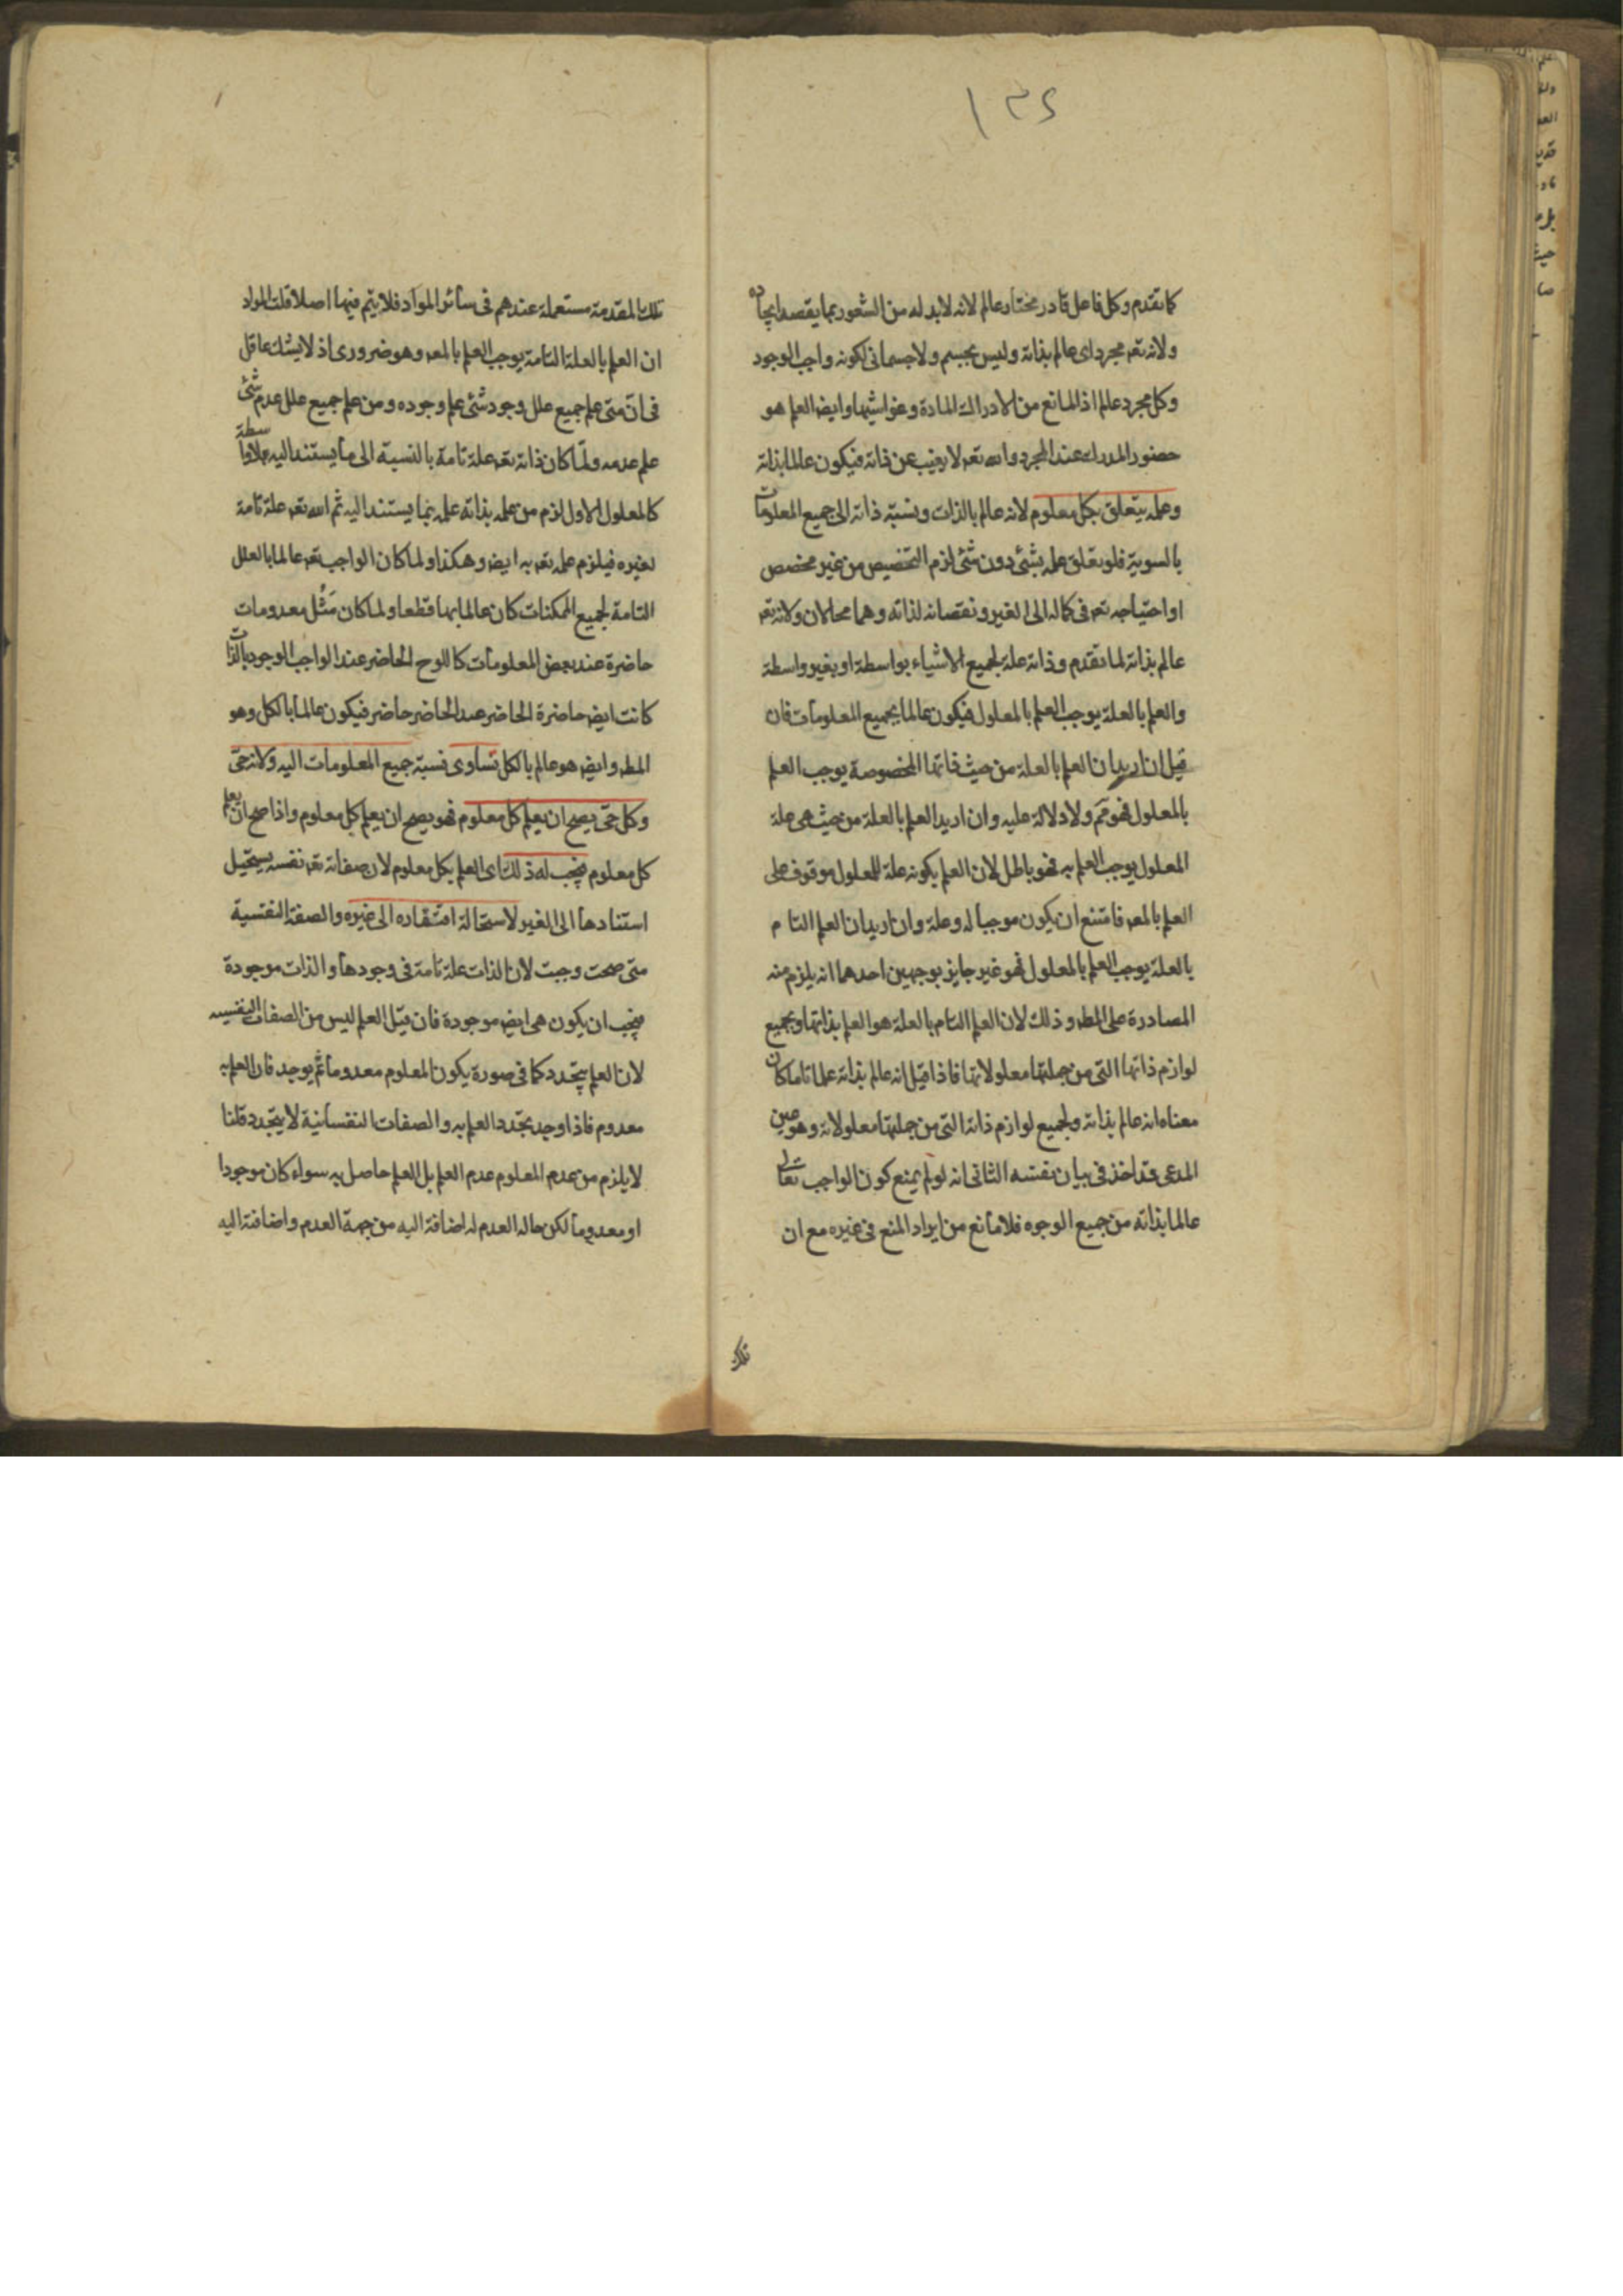 ١٣٤
كما تقدم وكل فاعل قادر مختار عالم لانه لابد له من الشعور بما يقصد ايجاده
ولانه تعـ مجرد اى عالم بذاته وليس بجسم ولا جسمانى لكونه واجب الوجود
وكل مجرد عالم اذ المانع من الادراك المادة وغواشيها وايضـ العلم هو
حضور المدرك عند المجرد والله تعـ لا يغيب عن ذاته فيكون عالما بذاته
وعلمه يتعلق بكل معلوم لانه عالم بالذات ونسبة ذاته الى جميع المعلومات
بالسوية فلو تعلق علمه بشئ دون شئ لزم التخصيص من غير مخصص
او احتياجه تعـ فى كماله الى الغير ونقصانه لذاته وهما محالان ولانه تعـ
عالم بذاته لما تقدم وذاته علة لجميع الاشياء بواسطة او بغير واسطة
والعلم بالعلة يوجب العلم بالمعلول فيكون عالما بجميع المعلومات فان
قيل ان اريد ان العلم بالعلة من حيث ذاتها المخصوصة يوجب العلم
بالمعلول فهو مم ولا دلالة عليه وان اريد العلم بالعلة من حيث هى علة
المعلول يوجب العلم به فهو باطل لان العلم بكونه علة للمعلول موقوف على
العلم بالمعـ فامتنع ان يكون موجبا له وعلة وان اريد ان العلم التام
بالعلة يوجب العلم بالمعلول فهو غير جايز بوجهين احدهما انه يلزم منه
المصادرة على المطـ وذلك لان العلم التام بالعلة هو العلم بذاتها وبجميع
لوازم ذاتها التى من جملتها معلولاتها فاذا قيل انه عالم بذاته علما تاما كان
معناه انه عالم بذاته ولجميع لوازم ذاته التى من جملتها معلولاته وهو عين
المدعى قد اخذ فى بيان نفسه الثانى انه لو لم يمنع كون الواجب تعالى
عالما بذاته من جميع الوجوه فلا مانع من ايراد المنع فى غيره مع ان
تلك
تلك المقدمة مستعملة عندهم فى سائر المواد فلا يتم فيها اصلا قلت المراد
ان العلم بالعلة التامة يوجب العلم بالمعـ وهو ضرورى اذ لا يشك عاقل
فى ان متى علم جميع علل وجود شئ علم وجوده ومن علم جميع علل عدم شئ
علم عدمه ولما كان ذاته تعـ علة تامة بالنسبة الى ما يستند اليه بلا واسطة
كالمعلول الاول لزم من علمه بذاته علمه بما يستند اليه ثم الله تعـ علة تامة
لغيره فيلزم علمه تعـ به ايضـ وهكذا ولما كان الواجب تعـ عالما بالعلل
التامة لجميع الممكنات كان عالما بها قطعا ولما كان مثل معدومات
حاضرة عند بعض المعلومات كاللوح الحاضر عند الواجب الوجود بالذات
كانت ايضـ حاضرة الحاضر عند الحاضر حاضر فيكون عالما بالكل وهو
المطـ وايضـ هو عالم بالكل تساوى نسبة جميع المعلومات اليه ولانه حى
وكل حى يصح ان يعلم كل معلوم فهو يصح ان يعلم كل معلوم واذا صح ان يعلم
كل معلوم فيجب له ذلك اى العلم بكل معلوم لان صفاته تعـ نفسه يستحيل
استنادها الى الغير لاستحالة افتقاره الى غيره والصفة النفسية
متى صحت وجبت لان الذات علة تامة فى وجودها والذات موجودة
فيجب ان يكون هى ايضـ موجودة فان قيل العلم ليس من الصفات النفسيه
لان العلم يتجدد كما فى صورة يكون المعلوم معدوما ثم يوجد فان العلم به
معدوم فاذا وجد تجدد العلم به والصفات النفسانية لا يتجدد قلنا
لا يلزم من عدم المعلوم عدم العلم بل العلم حاصل به سواء كان موجودا
او معدوما لكن حاله العدم له اضافة اليه من جهة العدم واضافة اليه